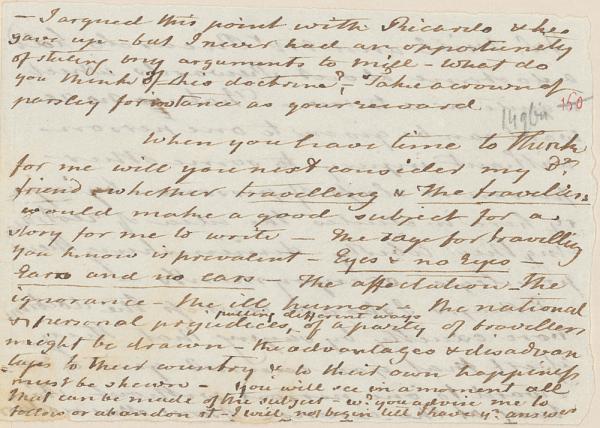 – I argued this point with Ricardo & he
gave up – but I never had an opportunity
of stating my arguments to Mill – What do
you think of this doctrine? – Take a crown of
parsley for instance as your reward.
150
When you have time to think
for me will you next consider my Dr.
friend whether travelling & The travellers
would make a good subject for a
story for me to write – The rage for travelling
you know is prevalent – Eyes & no Eyes –
Ears and no ears – The affectation – the
ignorance – the ill humor & the national
& personal prejudices, of a party of travellers
pulling different ways
might be drawn – the advantages & disadvan
tages to their country & to their own happiness
must be shewn – You will see in a moment all
that can be made of the subject – wd. you advise me to
follow or abandon it – I will not begin till I have yr. answer